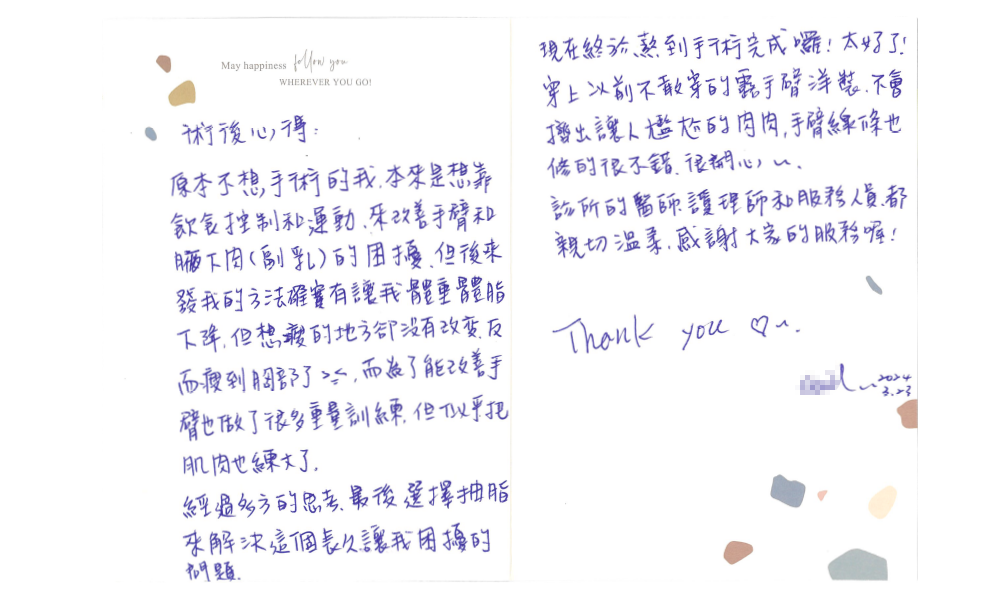 May happiness follow you
WHEREVER YOU GO!
術後心得:
原本不想手術的我,本來是想靠
飲食控制和運動,來改善手臂和
腋下肉(副乳)的困擾,但後來
發我的方法確實有讓我體重體脂
下降,但想瘦的地方卻沒有改變,反
而瘦到胸部了><,而為了能改善手
臂也做了很多重量訓練,但似乎把
肌肉也練大了,
經過多方的思考,最後選擇抽脂
來解決這個長久讓我困擾的
問題.
現在終於熬到手術完成囉!太好了!
穿上以前不敢穿的露手臂洋裝,不會
擠出讓人尷尬的肉肉,手臂線條也
修的很不錯,很開心~.
診所的醫師,護理師和服務人員都
親切溫柔,感謝大家的服務喔!
Thank you ♡~.
2024
3.23